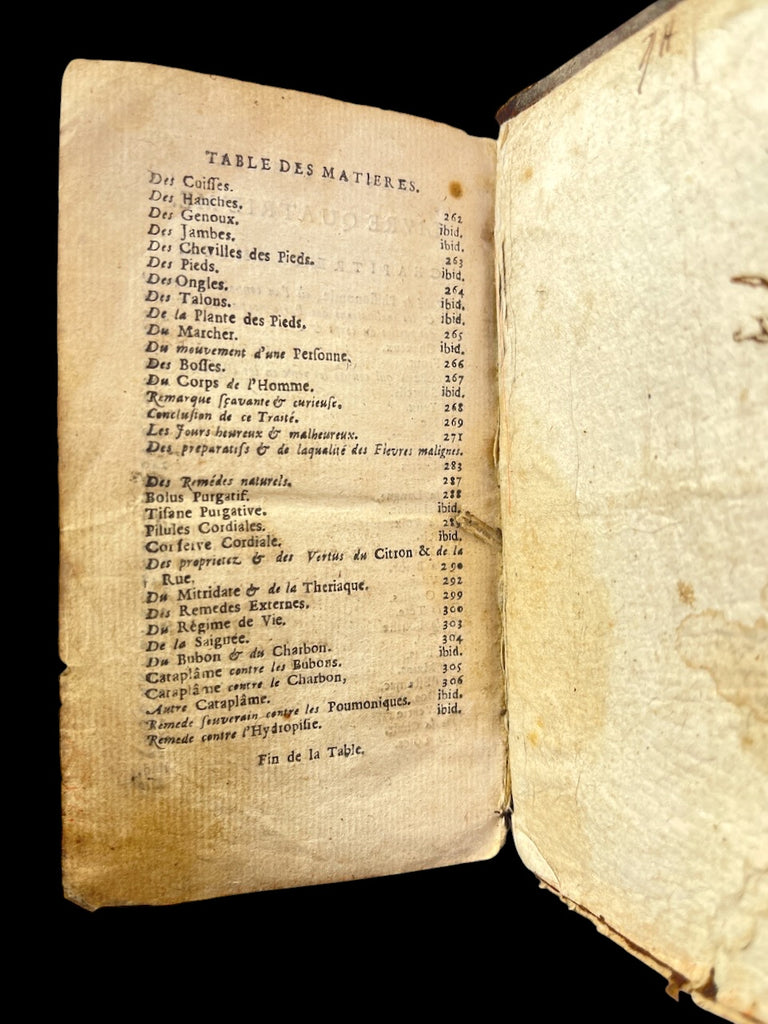 TABLE DES MATIERES.
Des Cuiſſes. 262
Des Hanches. ibid.
Des Genoux. ibid.
Des Jambes. 263
Des Chevilles des Pieds. ibid.
Des Pieds. 264
Des Ongles. ibid.
Des Talons. ibid.
De la Plante des Pieds. 265
Du Marcher. ibid.
Du mouvement d'une Perſonne. 266
Des Boſſes. 267
Du Corps de l'Homme. ibid.
Remarque ſçavante & curieuſe. 268
Concluſion de ce Traité. 269
Les Jours heureux & malheureux. 271
Des preparatifs & de laqualité des Fievres malignes.
283
Des Remédes naturels. 287
Bolus Purgatif. 288
Tiſane Purgative. ibid.
Pilules Cordiales. 289
Conſerve Cordiale. ibid.
Des proprietez & des Vertus du Citron & de la
Rue. 290
Du Mitridate & de la Theriaque. 292
Des Remedes Externes. 299
Du Régime de Vie. 300
De la Saignée. 303
Du Bubon & du Charbon. 304
Cataplâme contre les Bubons. ibid.
Cataplâme contre le Charbon, 305
Autre Cataplâme. 306
Remede ſouverain contre les Poumoniques. ibid.
Remede contre l'Hydropiſie. ibid.
Fin de la Table.